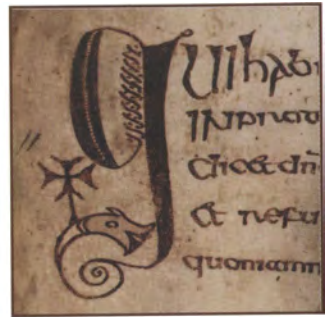 Qui habi
IN
dicet dn̄
et refu
quoniam